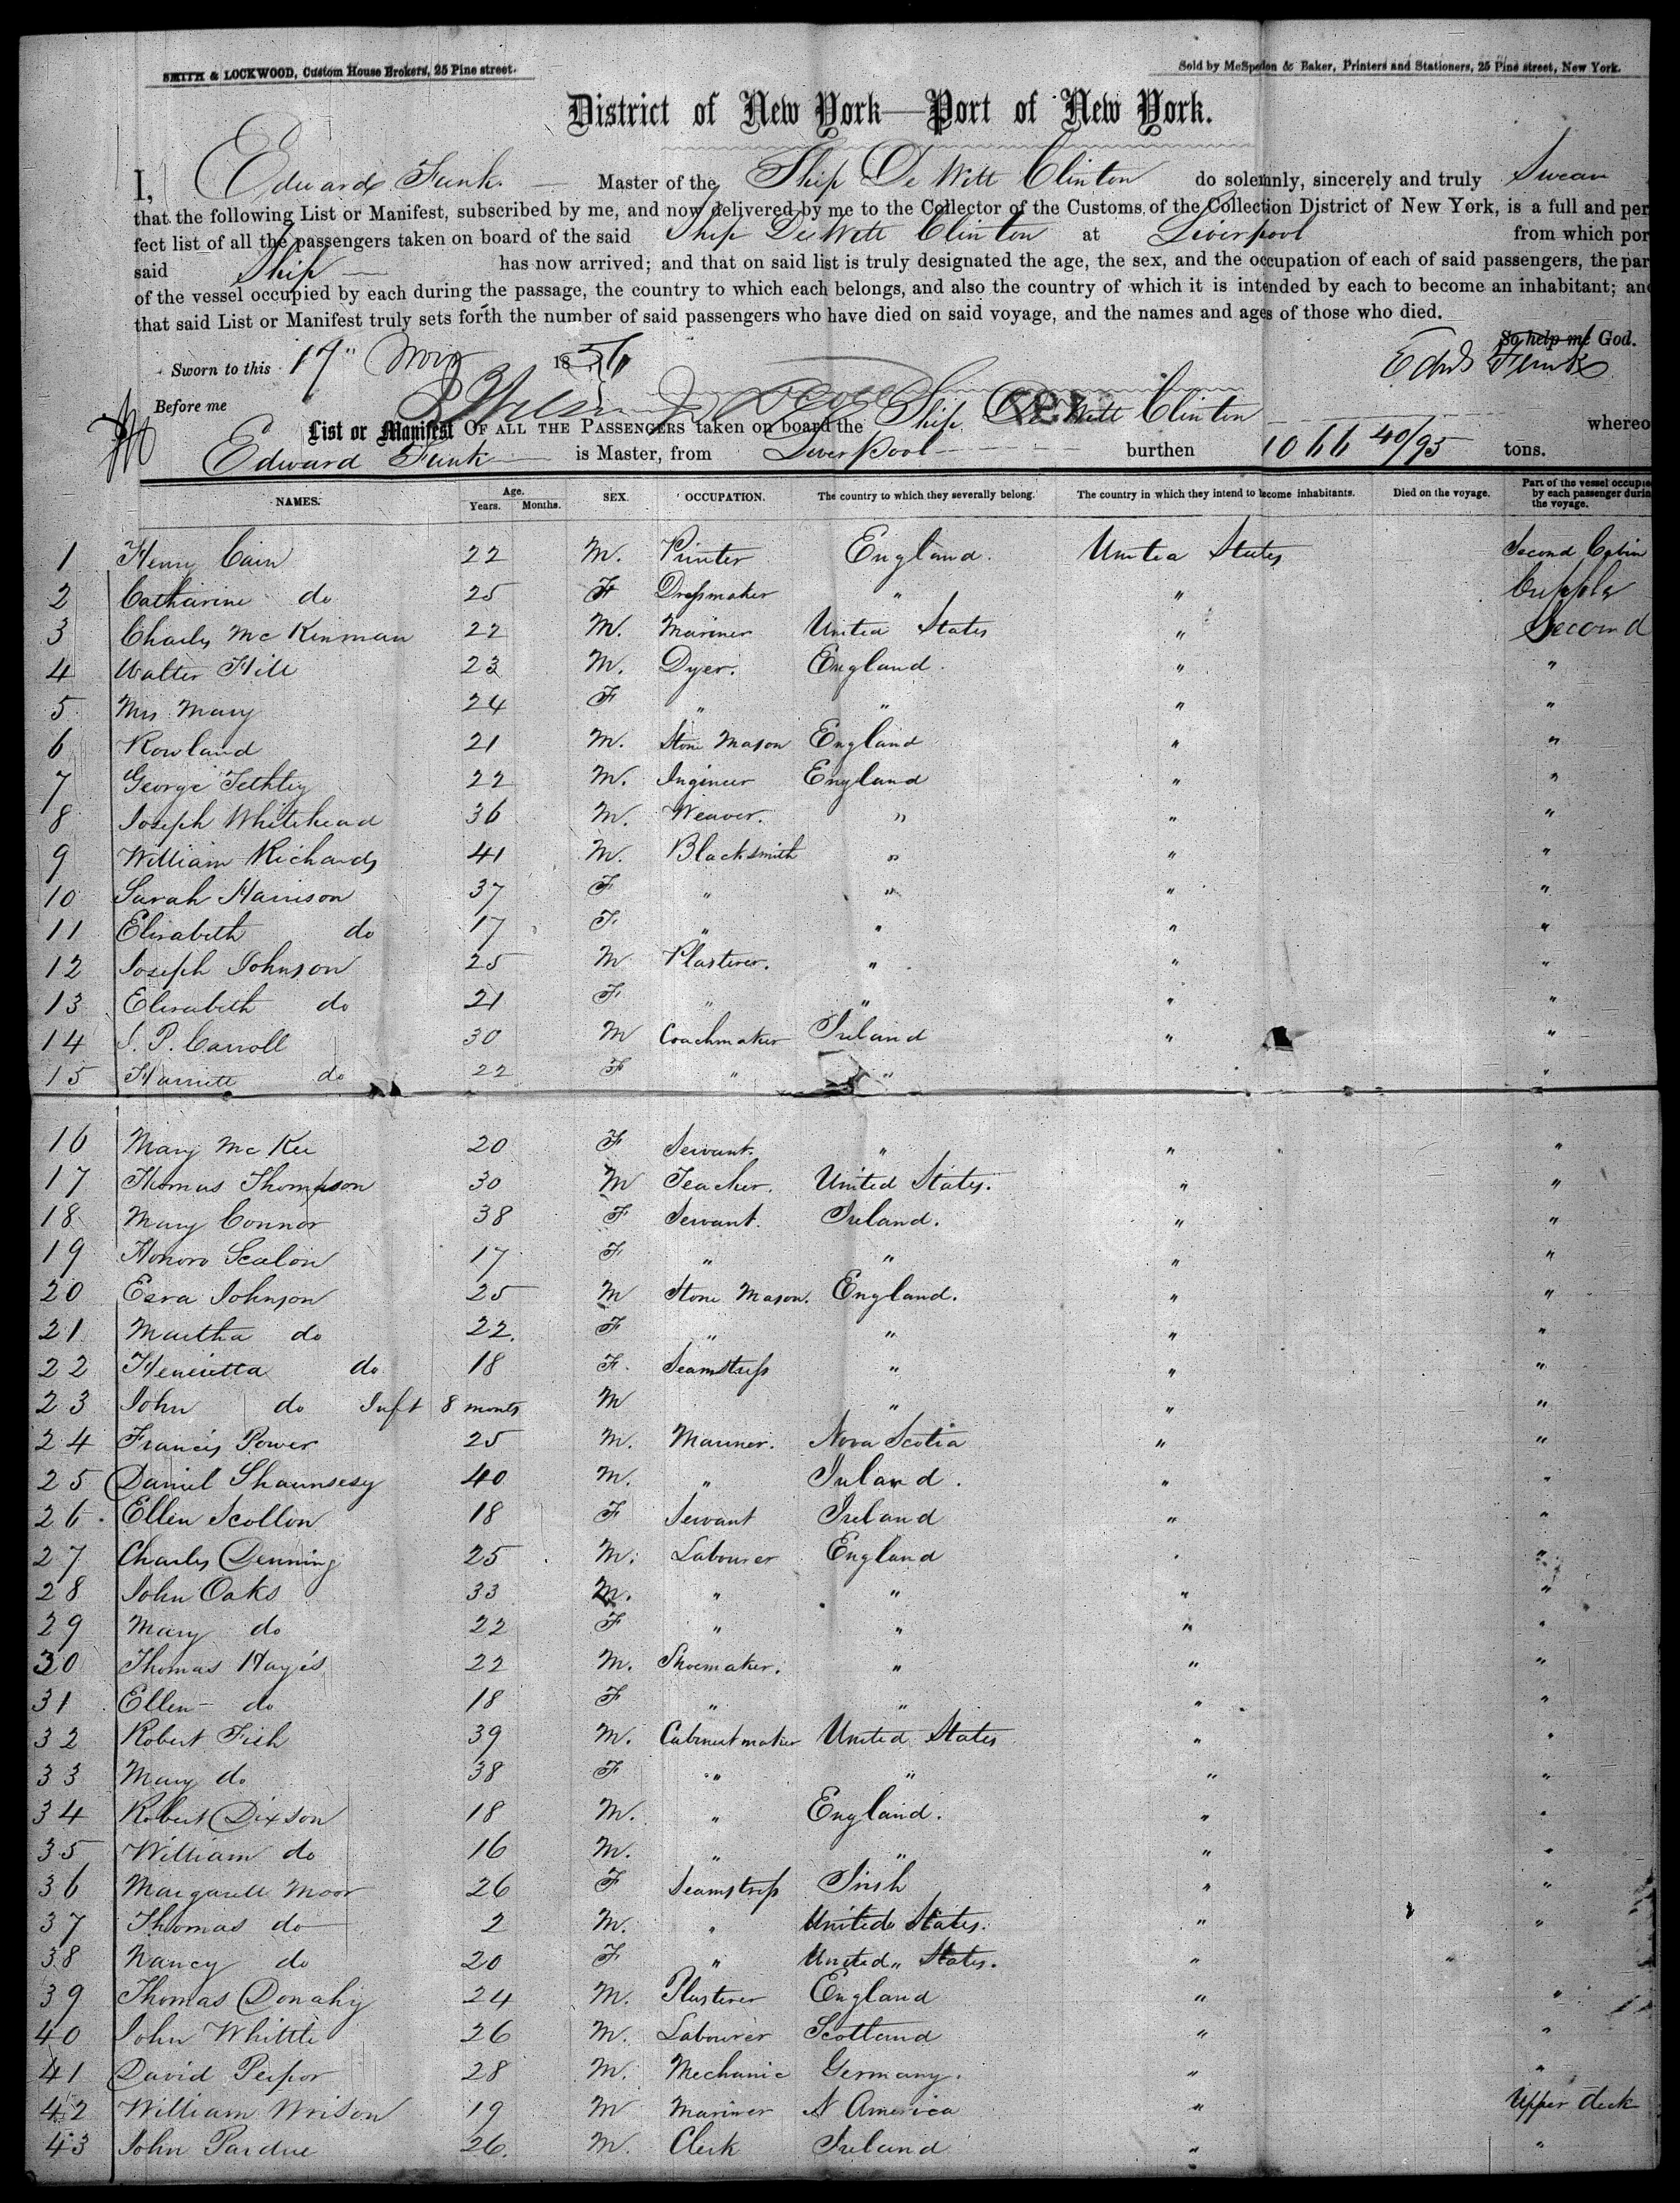 SMITH & LOCKWOOD, Custom House Brokers, 25 Pine street.
Sold by McSpedon & Baker, Printers and Stationers, 25 Pine street, New York.
District of New York—Port of New York.
I, Edward Funk. Master of the Ship De Witt Clinton do solemnly, sincerely and truly Swear
that the following List or Manifest, subscribed by me, and now delivered by me to the Collector of the Customs of the Collection District of New York, is a full and per
fect list of all the passengers taken on board of the said Ship DeWitt Clinton at Liverpool from which por
said Ship has now arrived; and that on said list is truly designated the age, the sex, and the occupation of each of said passengers, the par
of the vessel occupied by each during the passage, the country to which each belongs, and also the country of which it is intended by each to become an inhabitant; and
that said List or Manifest truly sets forth the number of said passengers who have died on said voyage, and the names and ages of those who died.
So help me God.
Sworn to this 17" 1856
Edwd Funk
Before me
List or Manifest OF ALL THE PASSENGERS taken on board the Ship De Witt Clinton whereo
Edward Funk is Master, from Liverpool burthen 1066 40/95 tons.
NAMES. Age. Years. Months. SEX. OCCUPATION. The country to which they severally belong. The country in which they intend to become inhabitants. Died on the voyage. Part of the vessel occupied by each passenger durin the voyage.
1 Henry Cain 22 M. Printer England. United States Second Cabin
2 Catharine do 25 F Dressmaker " "
3 Charles McKinman 22 M. Mariner United States " Second
4 Walter Hill 23 M. Dyer. England. " "
5 Mrs Mary 24 F " " " "
6 Rowland 21 M. Stone Mason England " "
7 George Tethley 22 M. Ingineer England " "
8 Joseph Whitehead 36 M. Weaver. " " "
9 William Richards 41 M. Blacksmith " " "
10 Sarah Harrison 37 F " " " "
11 Elisabeth do 17 F. " " " "
12 Joseph Johnson 25 M Plasterer. " " "
13 Elisabeth do 21 F " " " "
14 J. P. Carroll 30 M Coachmaker Ireland " "
15 Harriett do 22 F " " "
16 Mary McKee 20 F Servant. " " "
17 Thomas Thompson 30 M Teacher. United States. " "
18 Mary Connor 38 F Servant. Ireland. " "
19 Honoro Scalon 17 F " " " "
20 Ezra Johnson 25 M Stone Mason. England. " "
21 Martha do 22. F " " " "
22 Henrietta do 18 F. Seamstress " " "
23 John do Inft 8 monts M " " "
24 Francis Power 25 M. Mariner. Nova Scotia " "
25 Daniel Shaunsesy 40 M. " Ireland. " "
26 Ellen Scollon 18 F Servant Ireland " "
27 Charles Denning 25 M. Labourer England " "
28 John Oaks 33 M. " " " "
29 Mary do 22 F " " " "
30 Thomas Hayes 22 M. Shoemaker. " " "
31 Ellen do 18 F " " " "
32 Robert Fish 39 M. Cabinetmaker United States " "
33 Mary do 38 F " " " "
34 Robert Dixson 18 M. " England. " "
35 William do 16 M. " " " "
36 Margarett Moor 26 F Seamstress Irish " "
37 Thomas do 2 M. " United States. " "
38 Nancy do 20 F " United States. "
39 Thomas Donahy 24 M. Plasterer England " "
40 John Whittle 26 M. Labourer Scotland " "
41 David Peipor 28 M. Mechanic Germany. " "
42 William Wrison 19 M Mariner N America " Upper deck
43 John Pardue 26. M. Clerk Ireland " "